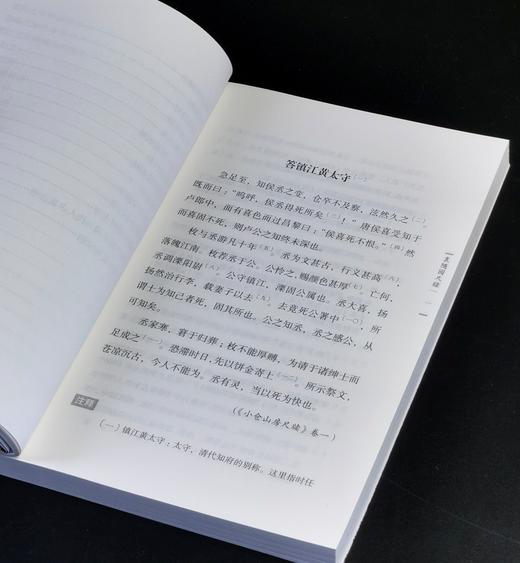 答镇江黄太守〔一〕
急足至，知侯丞之变，仓卒不及察，泫然久之〔二〕。
既而曰：“呜呼，侯丞得死所矣〔三〕！”唐侯喜受知于
卢郎中，面有喜色而过昌黎曰：“侯喜死不恨。”〔四〕然
而喜固不死，则卢公之知终未深也。
枚与丞游凡十年〔五〕。丞为文甚古，行文甚高〔六〕，
落魄江南。枚荐丞于公。公怜之，赐颜色甚厚〔七〕。亡何，
丞调溧阳尉〔八〕。公守镇江，溧固公属也。丞大喜，扬
扬然治行李，载妻子以去〔九〕。去竟死公署中〔一〇〕，所
谓士为知己者死，固其所也。公之知丞，丞之感公，从
可知矣。
丞家寒，窘于归葬；枚不能厚赙，为请于诸绅士而
足成之〔一一〕。恐滞时日，先以饼金寄上〔一二〕。所示祭文，
苍凉沉古，今人不能为。丞有灵，当以死为快也。
（《小仓山房尺牍》卷一）
注释
〔一〕镇江黄太守：太守，清代知府的别称。这里指时任
袁随园尺牍